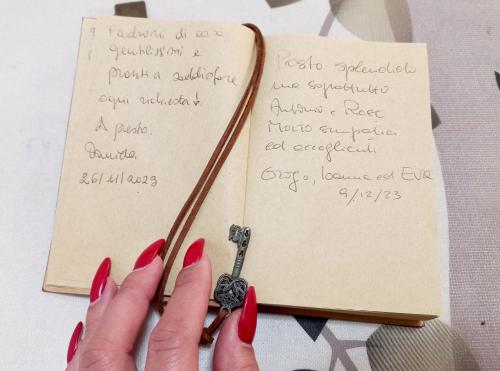 Padroni di casa
gentilissimi e
pronti a soddisfare
ogni richiesta!
A presto.
Daniela
26/11/2023
Posto splendido
ma soprattutto
Antonio e Rose
Molto simpatici
ed accoglienti
ed EVA
9/12/23